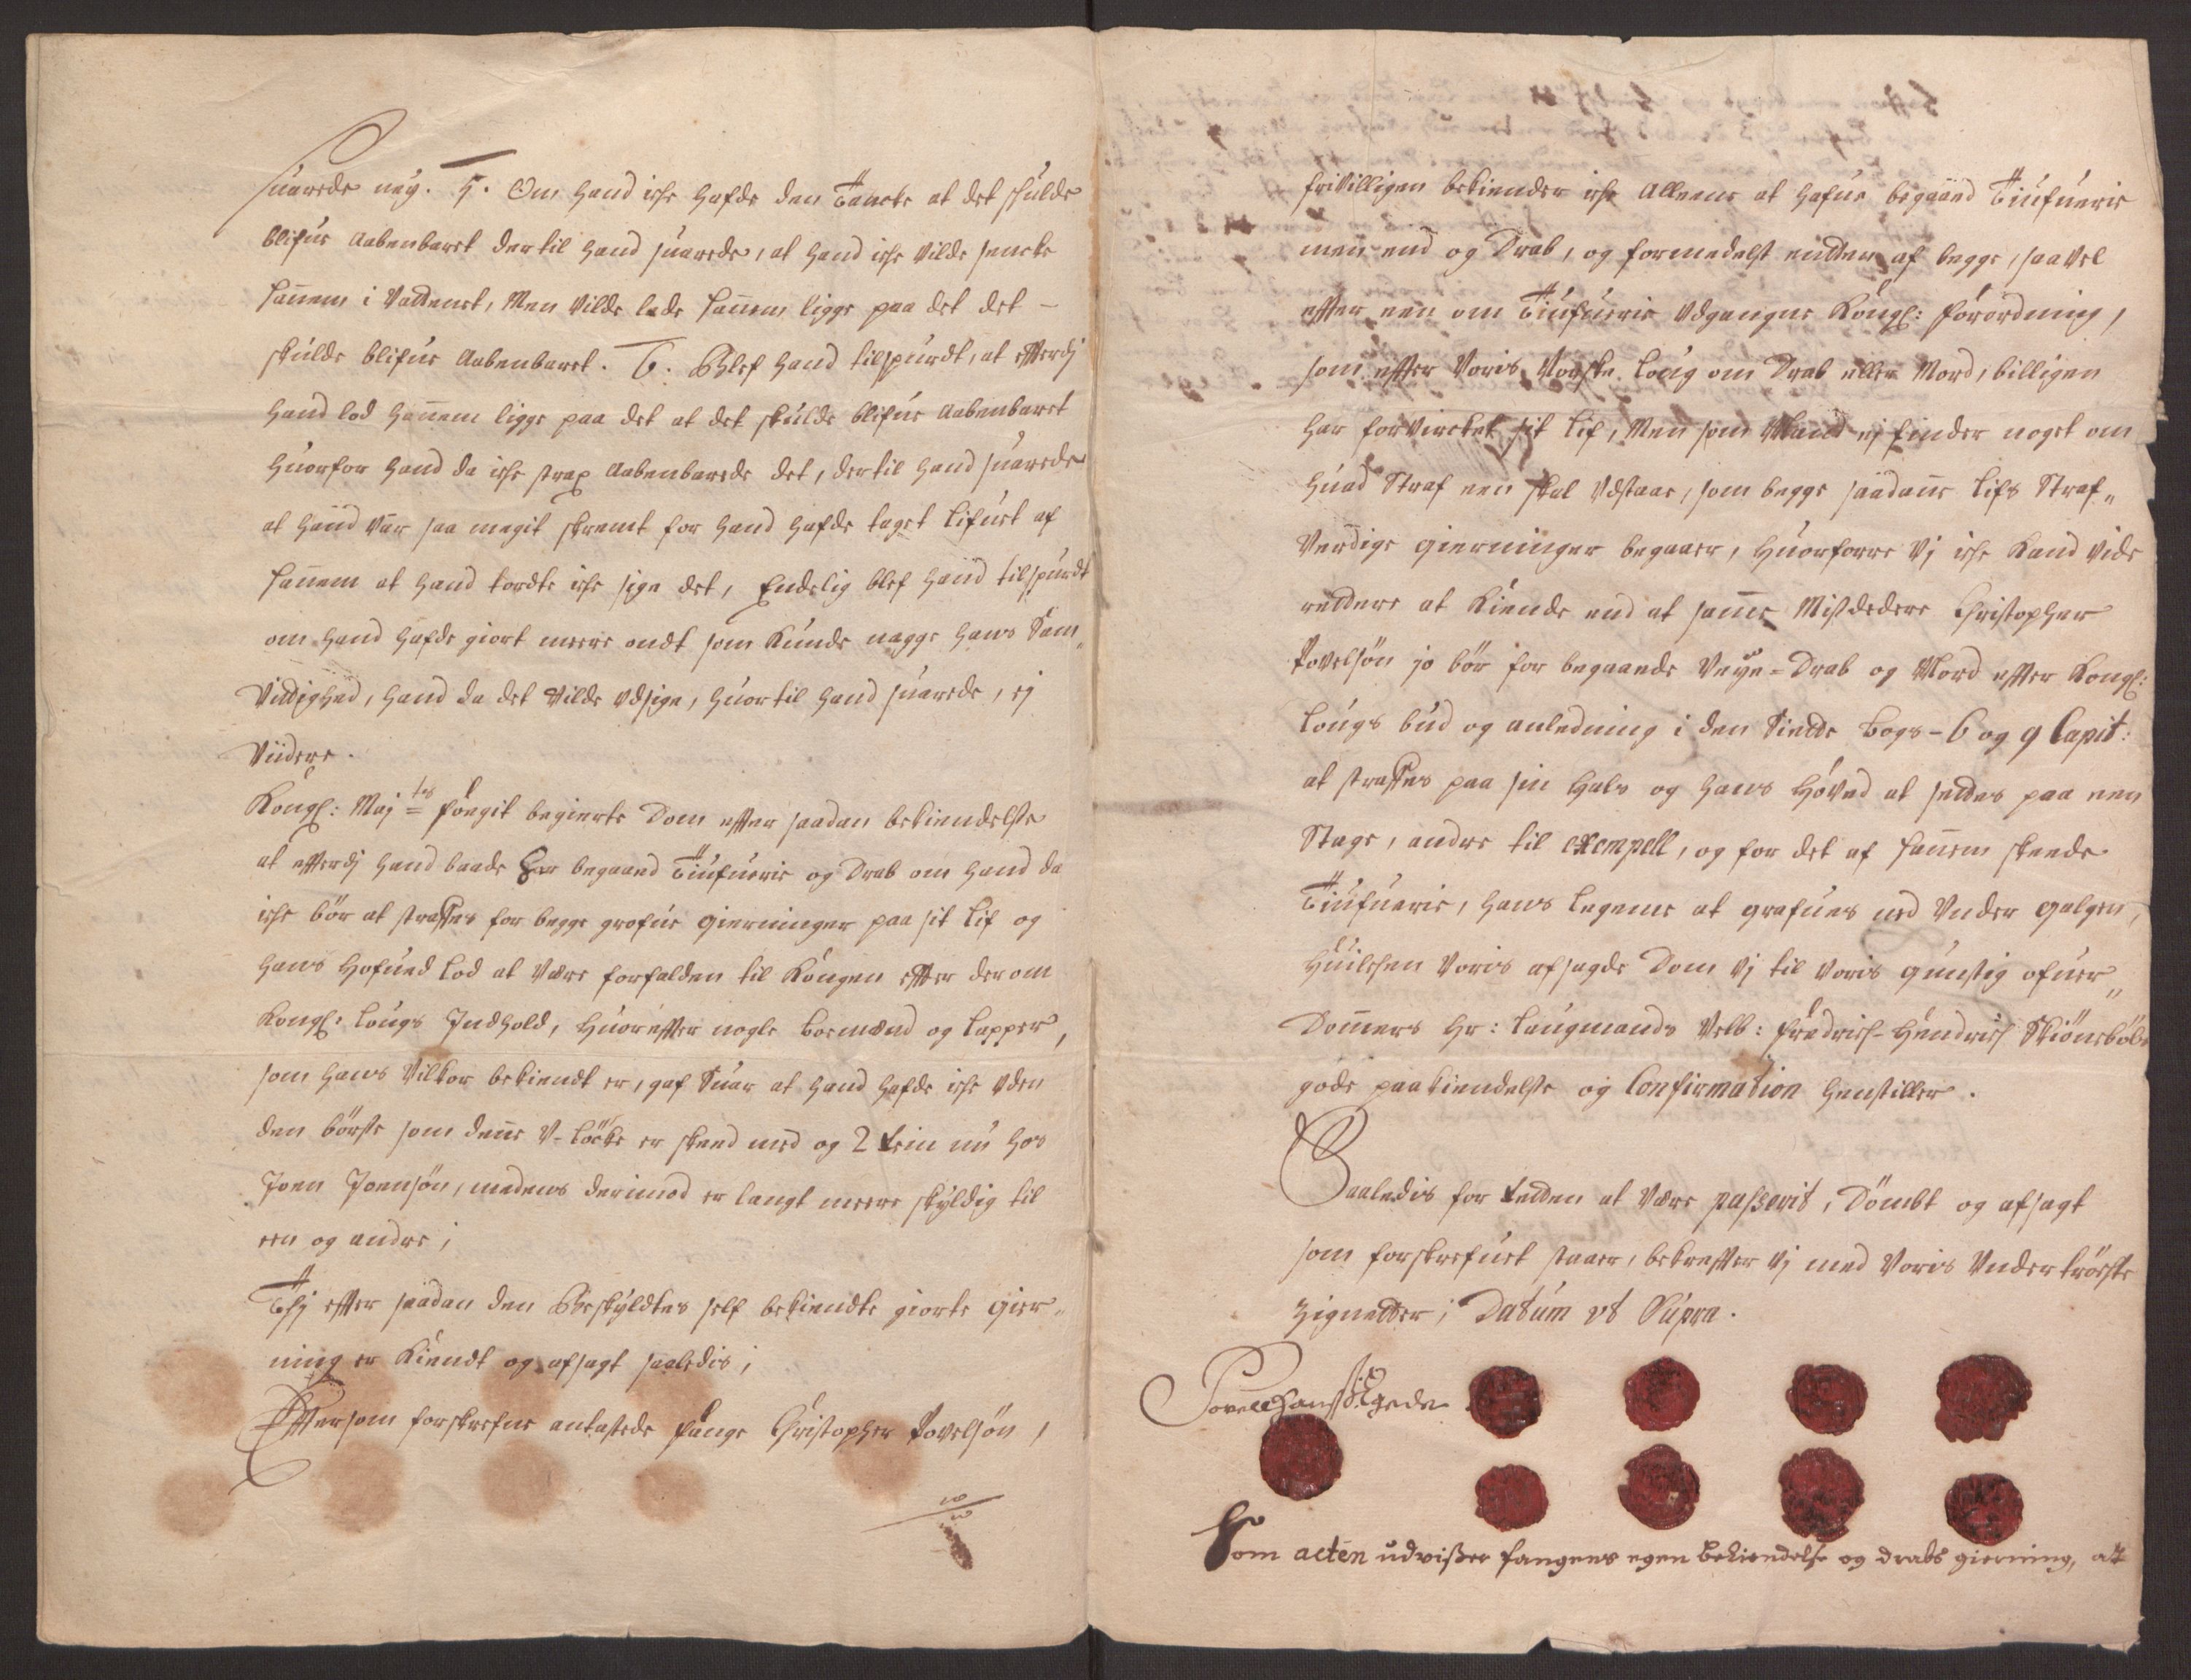 suarede nej. 5. Om hand iche hafde den Tancke at det skulde
blifue Aabenbaret dertil hand suarede, at hand iche vilde sencke
hannem i Vandenet, Men vilde lade hannem ligge paa det det –
skulde blifue Aabenbaret. 6. Blef hand tilspurdt, at efterdj
hand lod hannem ligge paa det at det skulde blifue Aabenbaret
huorfor hand da iche strax Aabenbarede det, dertil hand suarede
at hand var saa megit skremt for hand hafde taget Lifuet af
hannem at hand tordte iche sige det, Endelig blef hand tilspurdt
om hand hafde giort meere ondt som kunde nagge hans Sam„
vittighed, hand da det vilde udsige, huortil hand suarede, ej
viidere.
Kongl: Maj:tes fougit begierte Dom efter saadan bekiendelse
at efterdj hand baade har begaaed Tiufuerie og Drab om hand da
iche bör at straffes for begge grofue gierninger paa sit Lif og
hans Hofued Lod at være forfalden til Kongen efter der om
Kongl: Lougs Indhold, huorefter nogle Boemænd og Lapper,
som hans Vilkor bekiendt er, gaf Suar at hand hafde iche uden
den börse som denne U-löcke er skeed med og 2 Rein nu hos
Joen Joensön, medens derimod er langt meere skyldig til
een og andre;
Thj efter saadan den Beskyldtes self bekiendte giorte gier„
ning er Kiendt og afsagt saaledis;
Eftersom forskrefne antastede fange Christopher Povelsön,
frivilligen bekiender iche Alleene at hafue begaaed Tiufuerie
men end og Drab, og formedelst enten af begge, saavel
efter een om Tiufuerie udgangne Kongl: forordning,
som efter voris Norske Loug om Drab eller Mord, billigen
har forvircket sit Lif, Men som Mand ej finder noget om
huad Straf een skal udstaae, som begge saadanne Lifs Straf„
verdige gierninger begaaer, huorforre vj iche kand vide
rettere at kiende end at samme Misdedere Christopher
Povelsön jo bör for begaaede Veye-Drab og Mord efter Kongl:
Lougs bud og anledning i den Siette Bogs – 6 og 9 Capit:
at straffes paa sin Hals og hans Hoved at settes paa een
Stage, andre til exempell, og for det af hannem skeede
Tiufuerie, hans Legeme at grafues ned under galgen,
Huilchen voris afsagde Dom vj til voris gunstig ofuer„
Dommers Hr: Laugmands Velb: Fredrich-Hendrich Skiönebóls
gode paakiendelse og Confirmation henstiller.
Saaledis for Retten at være passerit, Dömbt og afsagt
som forskrefuet staaer, bekrefter vj med voris undertröchte
Zignetter; Datum ut Supra.
Povell Hansß: Egede
Som acten udvißer fangens egen bekiendelse og drabs gierning, att